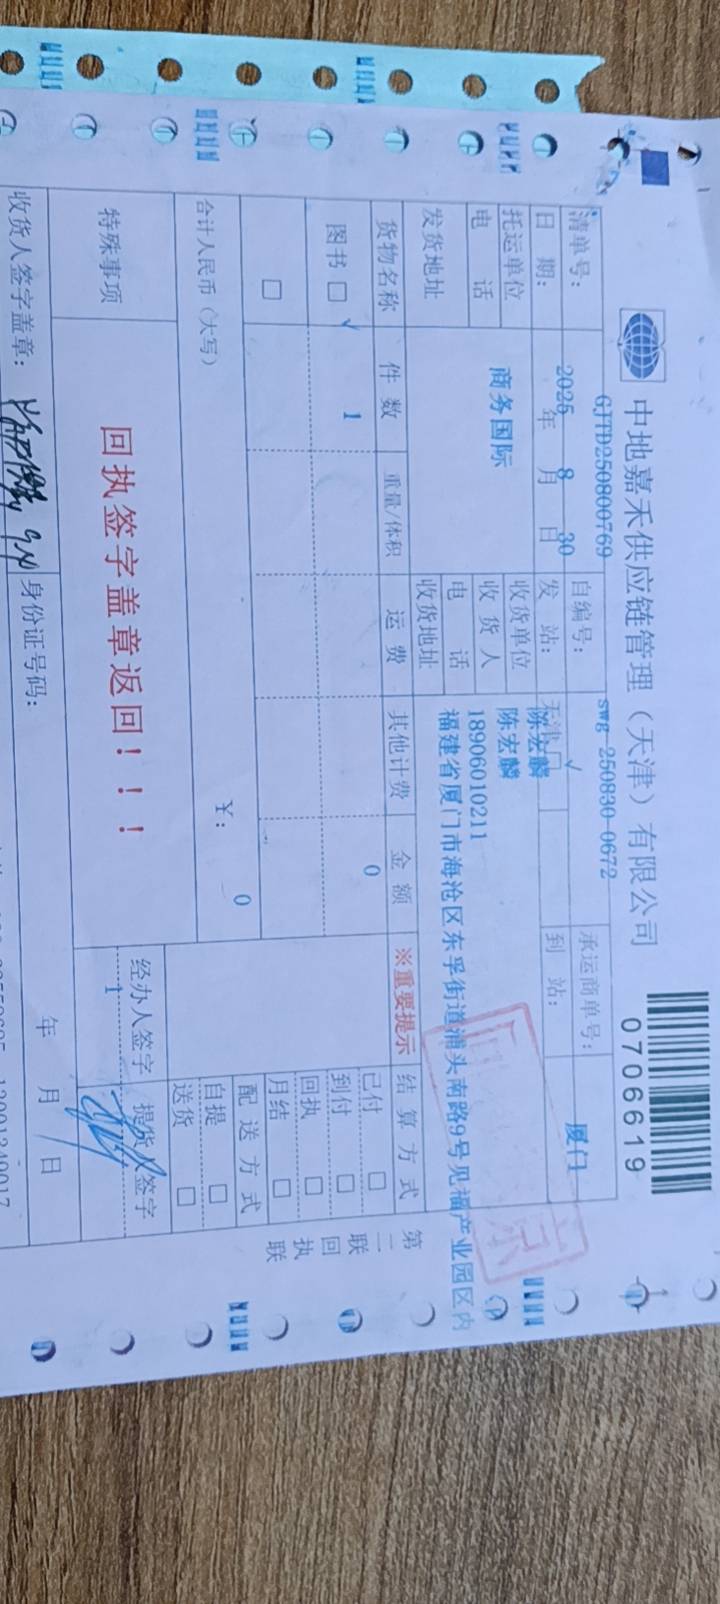 中地嘉禾供应链管理（天津）有限公司
0706619
清单号： GJTD250800769 自编号： swg-250830-0672 承运商单号：
日 期： 2025 年 8 月 30 日 发 站： 天津 √ 到 站： 厦门
托运单位 商务国际 收货单位 陈宏麟
收 货 人 陈宏麟
电 话 电 话 18906010211
发货地址 收货地址 福建省厦门市海沧区东孚街道浦头南路9号见福产业园区内
货物名称 件 数 重量/体积 运 费 其他计费 金 额 ※重要提示 结 算 方 式
图书 □ √ 1 0 已付 □
到付 □
回执 □
□ 月结 □
配 送 方 式
合计人民币（大写） ￥： 0 自提 □
送货 □
特殊事项 回执签字盖章返回！！！ 经办人签字 提货人签字
1
收货人签字盖章： 身份证号码： 年 月 日
第二联 回执联